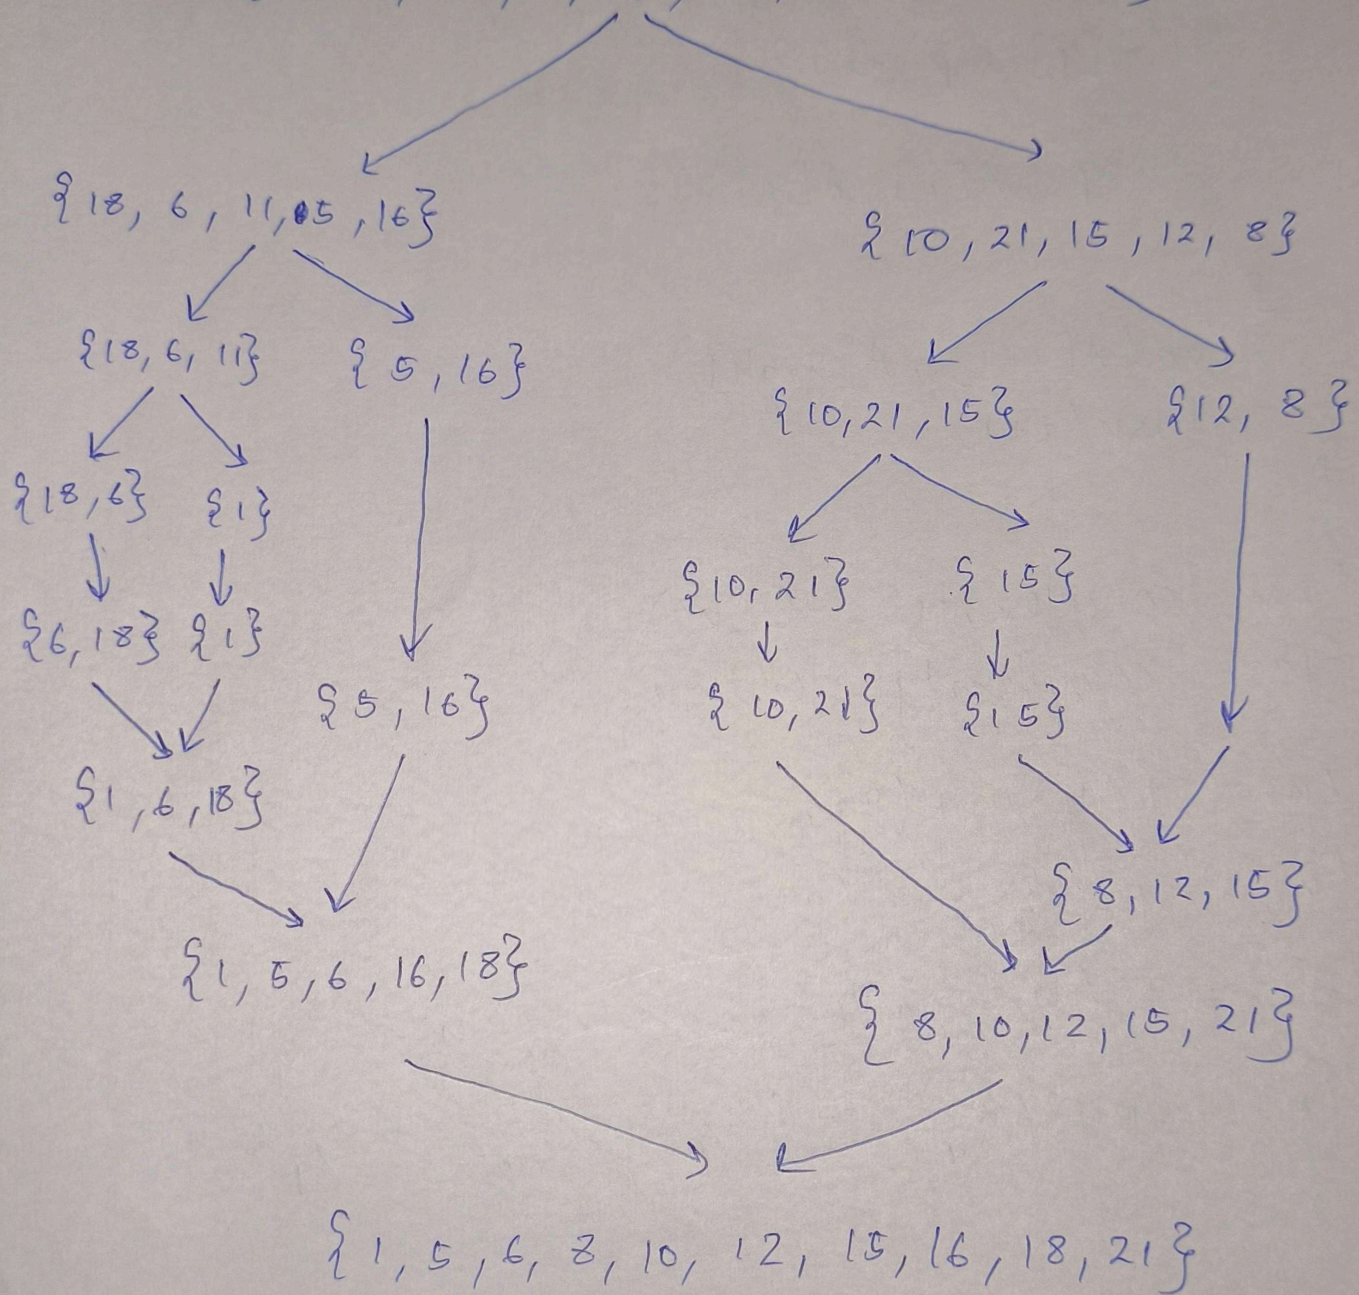 {18, 6, 11, 5, 16}
{10, 21, 15, 12, 8}
{18, 6, 11} {5, 16}
{10, 21, 15} {12, 8}
{18, 6} {1}
{10, 21} {15}
{6, 18} {1}
{5, 16} {10, 21} {15}
{1, 6, 18}
{8, 12, 15}
{1, 5, 6, 16, 18}
{8, 10, 12, 15, 21}
{1, 5, 6, 8, 10, 12, 15, 16, 18, 21}